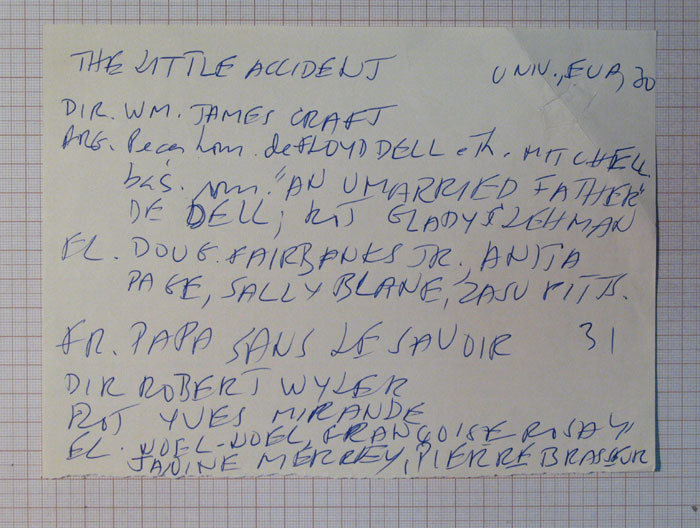 THE LITTLE ACCIDENT UNIV., EUA, 30
DIR. WM. JAMES CRAFT
ARG. Peça hom. de FLOYD DELL e Th. MITCHELL
bas. rom. "AN UMARRIED FATHER"
DE DELL; ROT GLADYS LEHMAN
EL. DOUG. FAIRBANKS JR., ANITA
PAGE, SALLY BLANE, ZASU PITTS.
FR. PAPA SANS LE SAVOIR 31
DIR ROBERT WYLER
ROT YVES MIRANDE
EL. NOEL-NOEL, FRANÇOISE ROSAY,
JANINE MERREY, PIERRE BRASSEUR